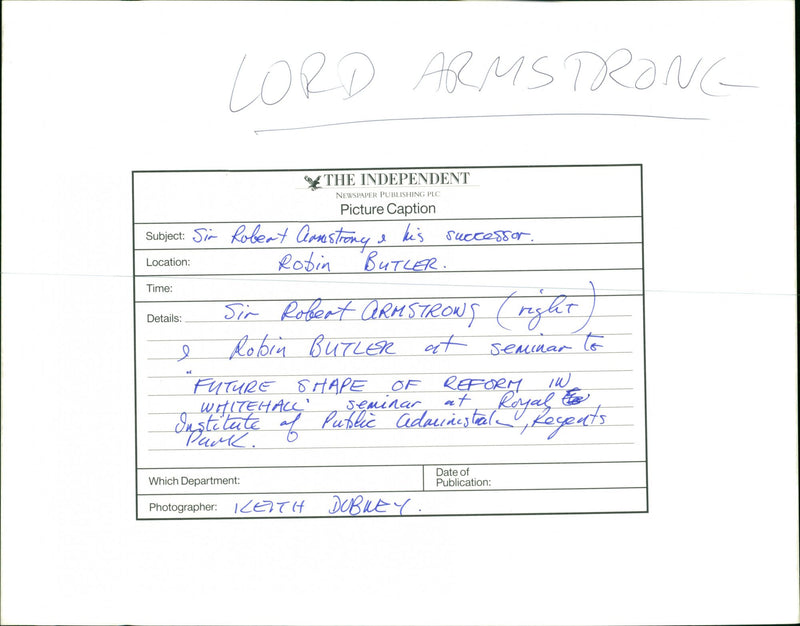 LORD ARMSTRONG
THE INDEPENDENT
NEWSPAPER PUBLISHING PLC
Picture Caption
Subject: Sir Robert Armstrong & his successor.
Location: Robin BUTLER.
Time:
Details: Sir Robert ARMSTRONG (right)
& Robin BUTLER at seminar to
"FUTURE SHAPE OF REFORM IN
WHITEHALL' seminar at Royal
Institute of Public Administratn, Regents
Park.
Which Department:
Date of
Publication:
Photographer: KEITH DOBNEY.